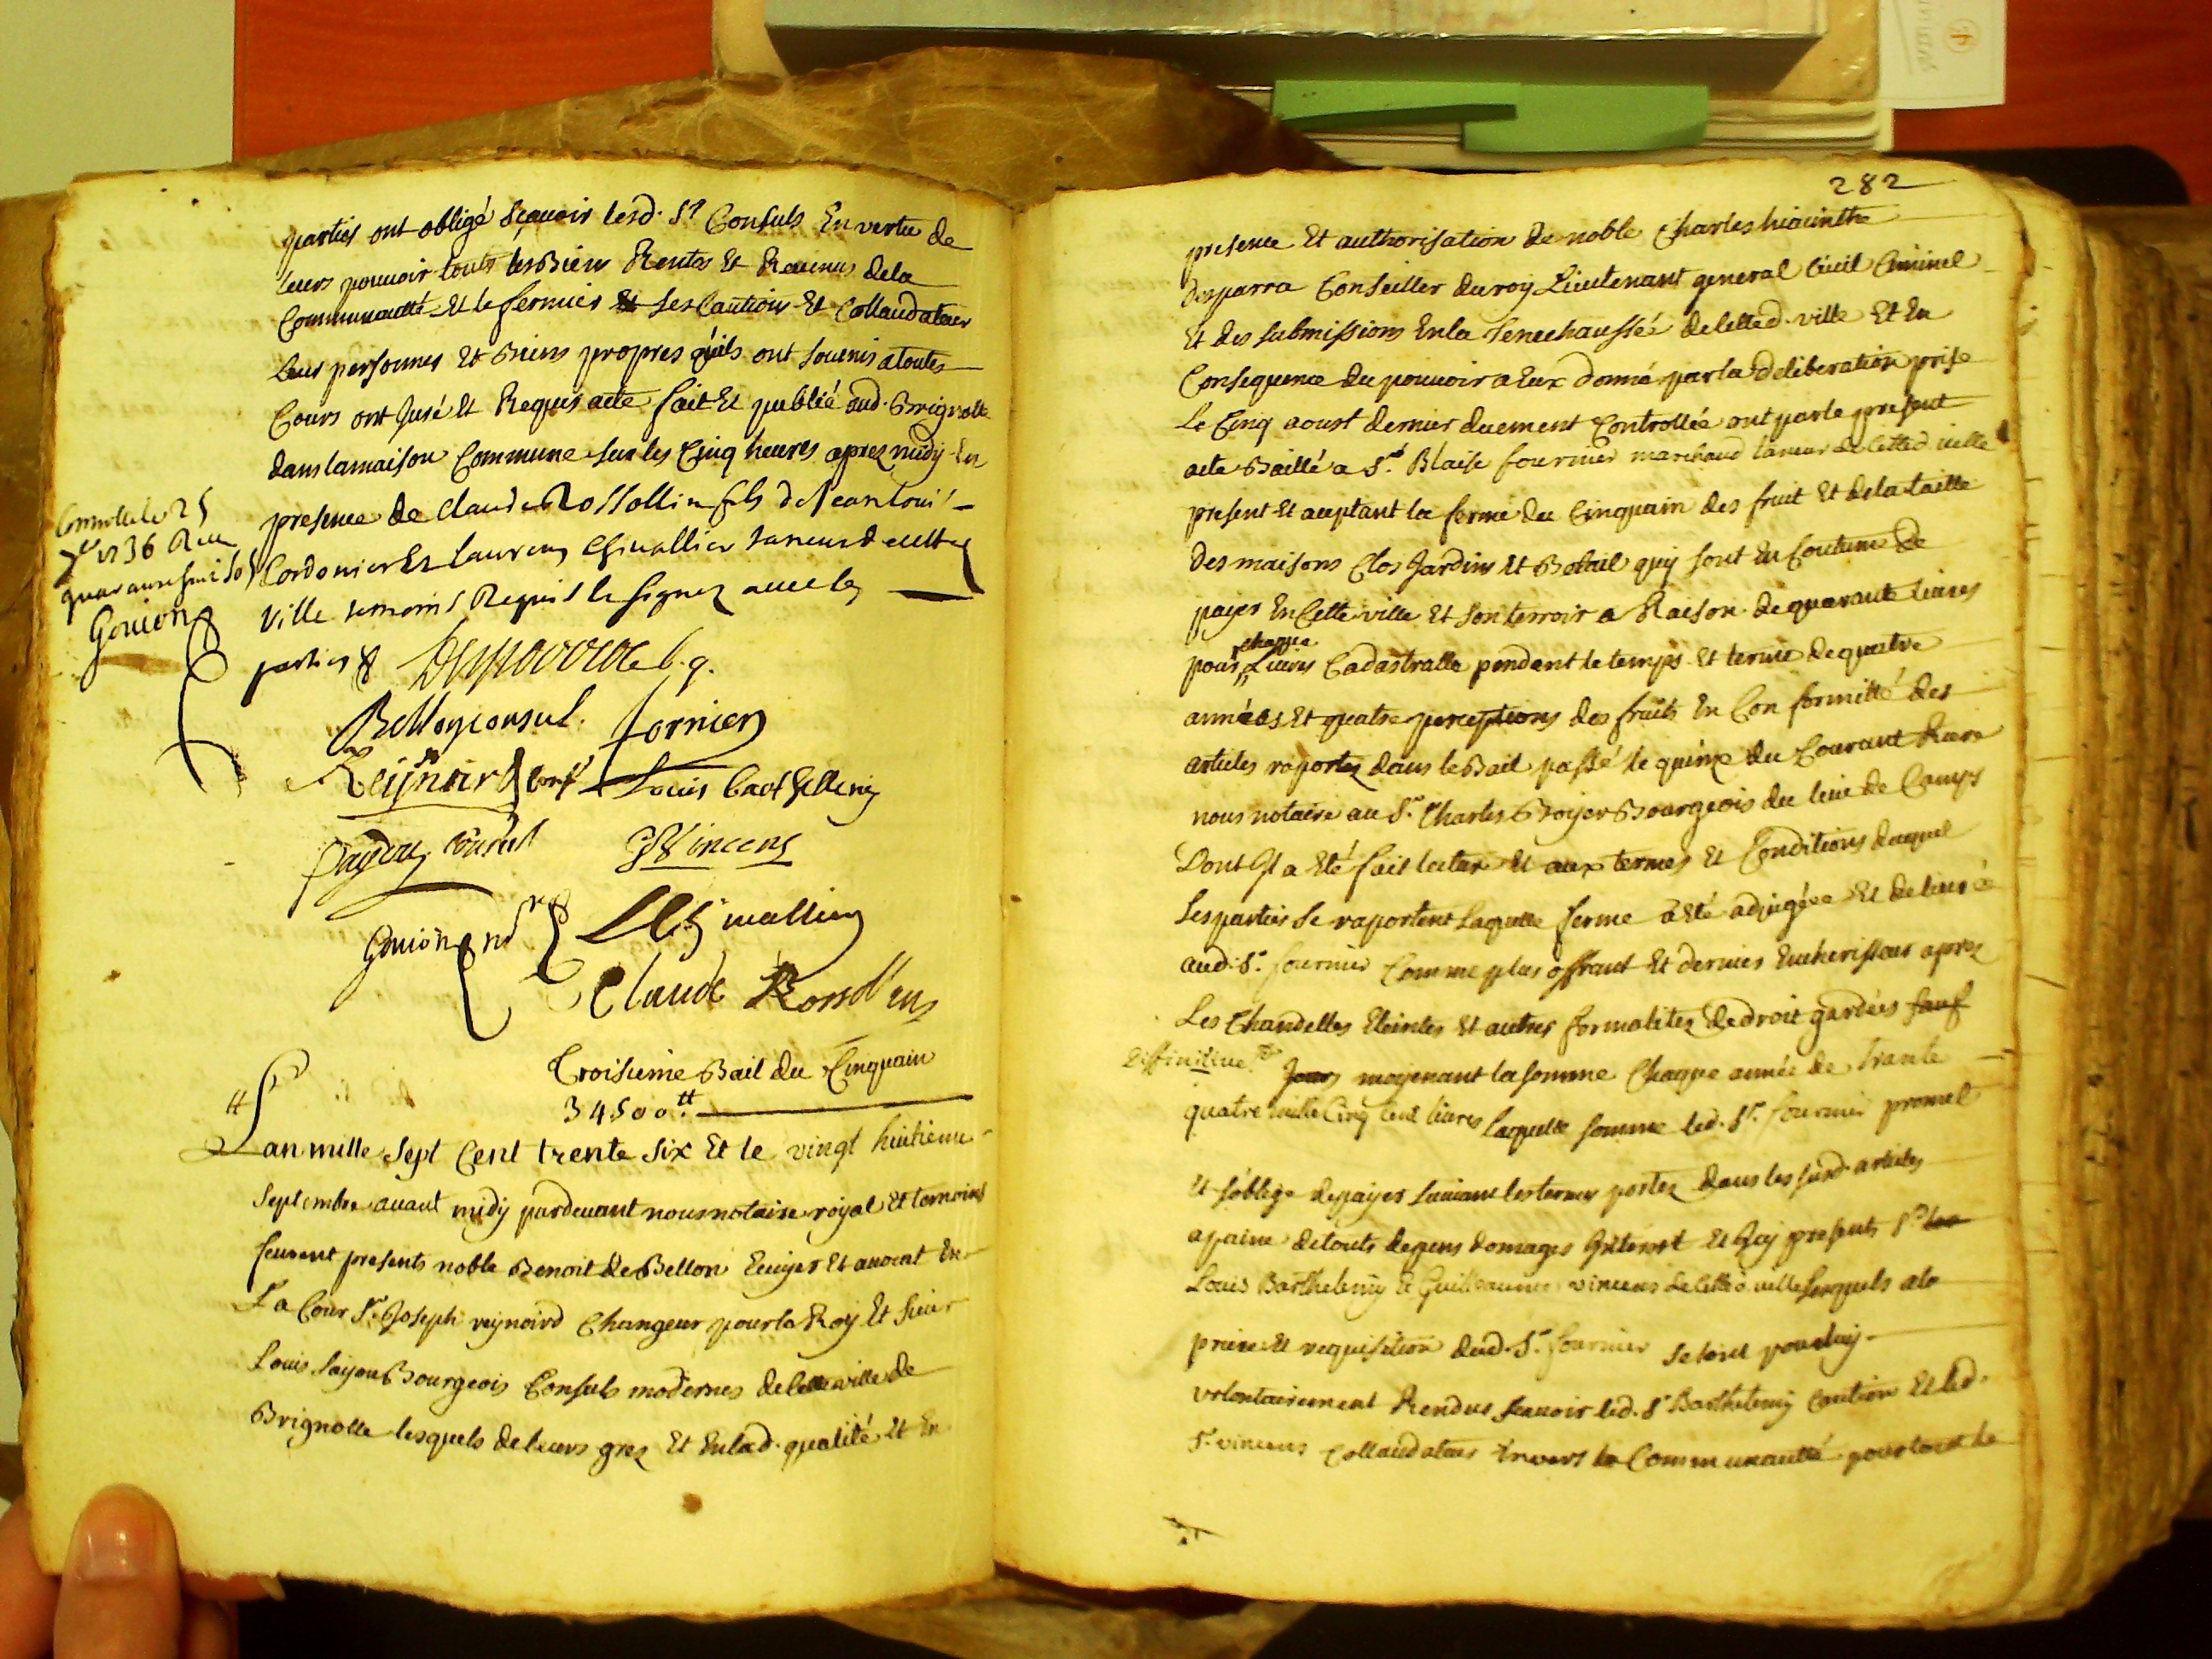 parties ont obligé sçavoir lesd. srs Consuls En vertu de
leurs pouvoir touts les Biens Rentes Et Revenus dela
Communauté Et le fermier Ses Caution Et Collaudateur
leur personnes Et Biens propres qu'ils ont soumis atoutes
Cours ont Juré Et Requis acte fait Et publié aud. Brignolle
dans la maison Commune sur les Cinq heures apres midy En
presence de Claude Rossollin fils de Jean Louis
Cordonier Et Laurens Chivallier taneur de cette
ville temoins Requis Et signez avec les
parties
Controllé le 25
7bre 1736 Reçu
quarante huit sols
Goujon
Desparra l. g.
Bellon consul. fornier
Reijnoird Consul Louis Barthellemy
Sayou Consul G Vincens
Goujon nre L Chivallier
Claude Rossollin
Troisieme Bail du Cinquain
34500 tt
L'an mille sept Cent trente six Et le vingt huitieme
Septembre avant midy pardevant nous notaire royal Et temoins
feurent presents noble Benoit de Bellon Ecuyer Et avocat En
La Cour Sr. Joseph reynoird Changeur pour le Roy Et sieur
Louis Sayou Bourgeois Consuls modernes de cette ville de
Brignolle lesquels de leurs grez Et En lad. qualité Et En
282
presence Et authorisation de noble Charles hiacinthe
desparra Conseiller du roy Lieutenant general Civil Criminel
Et des submissions En la Senechaussée de cetted. ville Et En
Consequence du pouvoir a Eux donné par la deliberation prise
Le Cinq aoust dernier duement Controllée ont par le present
acte Baillé a Sr. Blaise fournier marchand taneur de cetted ville
present Et aceptant la ferme du Cinquain des fruit Et dela taille
des maisons Clos Jardins Et Betail quy sont En Coutume de
payer En Cette ville Et son terroir a Raison de quarante livres
pour chaque Livres Cadastralle pendent le temps Et terme de quatre
années Et quatre perceptions des fruits En Conformitté des
articles raportez dans le Bail passé le quinze du Courant Riere
nous notaire au Sr. Charles Broyer Bourgeois du lieu de Camps
Dont Il a Eté fait lecture Et aux termes Et Conditions duquel
Les parties se raportent Laquelle ferme a Eté adjugée Et delivrée
aud. Sr. fournier Comme plus offrant Et dernier Encherisseur apres
Les Chandelles Eteintes Et autres formalitez de droit gardées sauf
Diffinitive Jours moyenant la somme Chaque année de trante
quatre mille Cinq Cent livres Laquelle somme led. Sr. fournier promet
Et s'oblige de payer suivant les termes portez dans les susd. articles
apaine de touts depens domages Interest Et Icy presents Srs
Louis Barthelemy Et Guilleaume vincens de cetted. ville Lesquels ala
priere Et requisition dud. Sr. fournier se sont pour luy
volontairement Rendus sçavoir led. Sr Barthelemy Caution Et led.
Sr. vincens Collaudateur Envers la Communautté pour tout le